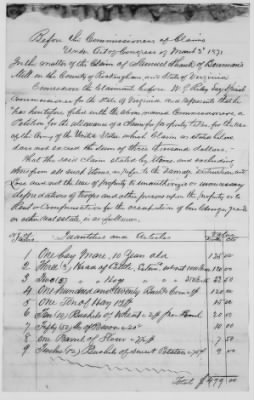 Before the Commissioners of Claims
Under Act of Congress of March 3d 1871
In the matter of the Claim of Samuel Shank of Bowman's
Mill in the County of Rockingham and State of Virginia
Comes now the Claimant before W. G. Riley Esq Special
Commissioner for the State of Virginia and represents that he
has heretofore filed with the above named Commissioners, a
Petition for the allowance of a Claim for property taken for the use
of the Army of the United States which Claim as stated below
does not exceed the sum of three thousand dollars.
That the said Claim stated by Items, and excluding
therefrom all such Items as refer to the Damage, destruction and
Loss and not the use of property to unauthorized or unnecessary
depredations of troops and other persons upon the property or to
Rent or Compensation for the occupation of buildings, grounds
or other real estate, is as follows:
No of Items Quantities and Articles Value
1 One bay Mare, 10 year old 125 00
2 Three (3) Head of Cattle 120 00
3 Hogs 52 50
4 One Hundred and Twenty Bushels Corn 120 00
5 One Ton of Hay 15 00
6 Ten (10) Bushels of Wheat 20 00
7 Fifty (50) lbs of Bacon 10 00
8 One Barrel of Flour
9 Twelve (12) Bushels of Sweet Potatoes 9 00
Total $ 479 00